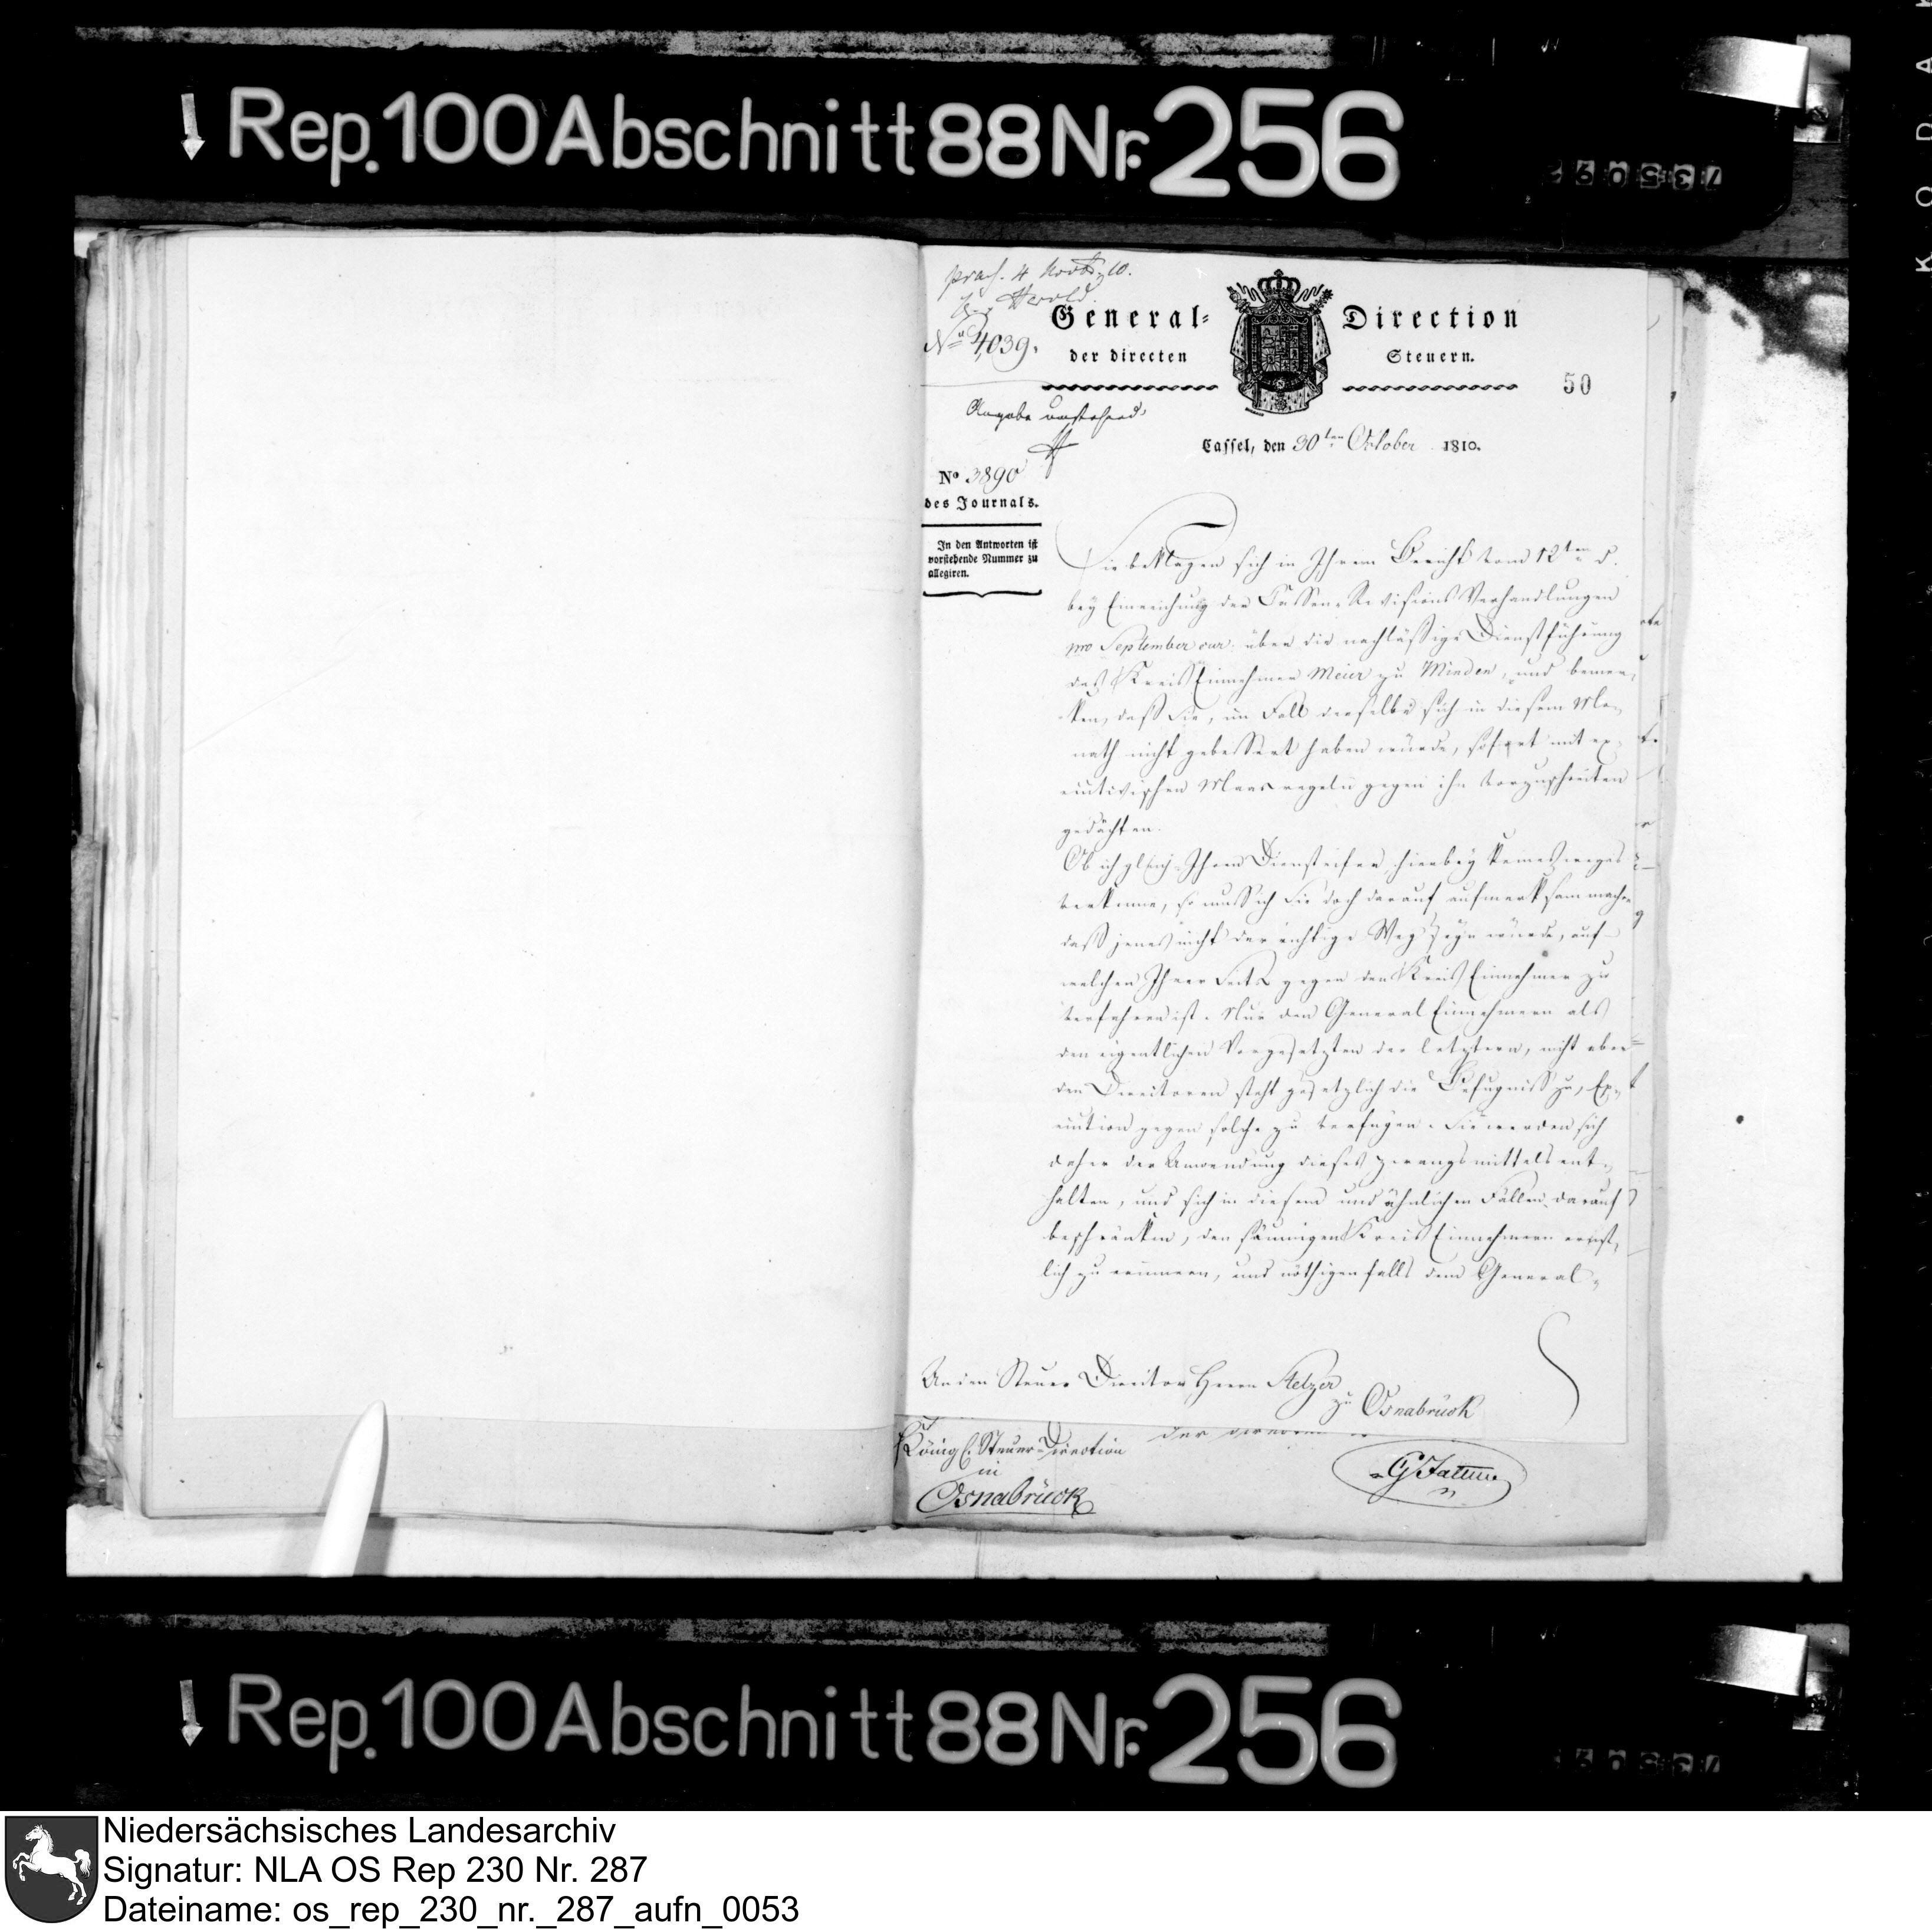 Rep. 100 Abschnitt 88 Nr. 256
praes. 4 Novbr 10.
Herold
No 4039.
General-Direction
der directen Steuern.
50
Cassel, den 30ten October 1810.
No 3890
des Journals.
In den Antworten ist
vorstehende Nummer zu
allegiren.
Sie beklagen sich in Ihrem Bericht vom 12ten d.
bey Einreichung der Cassen-Revisions Verhandlungen
pro September cur. über die nachläßige Dienstführung
des Kreis Einnehmer Meier zu Minden, und bemer-
ken, daß Sie, im Fall derselbe sich in diesem Mo-
nath nicht gebessert haben würde, sofort mit ex-
ecutivischen Maasregeln gegen ihn vorzuschreiten
gedächten.
Ob ich gleich Ihren Diensteifer hierbey keineswegs
verkenne, so muß ich Sie doch darauf aufmerksam machen
daß jenes nicht der richtige Weg seyn würde, auf
welchen Ihrer Seits gegen den Kreis Einnehmer zu
verfahren ist. Nur den General Einnehmern als
den eigentlichen Vorgesetzten der letztern, nicht aber
den Directoren steht gesetzlich die Befugniß zu, Ex-
ecution gegen solche zu verfügen. Sie werden sich
daher der Anwendung dieses Zwangsmittels ent-
halten, und sich in diesem und ähnlichen Fällen darauf
beschränken, den säumigen Kreis Einnehmern ernst-
lich zu erinnern, und nöthigenfalls dem General-
An den Steuer Director Herrn Stelzer
zu Osnabrück
Königl. Steuer-Direction
in
Osnabrück
Rep. 100 Abschnitt 88 Nr. 256
KODAK
Niedersächsisches Landesarchiv
Signatur: NLA OS Rep 230 Nr. 287
Dateiname: os_rep_230_nr._287_aufn_0053